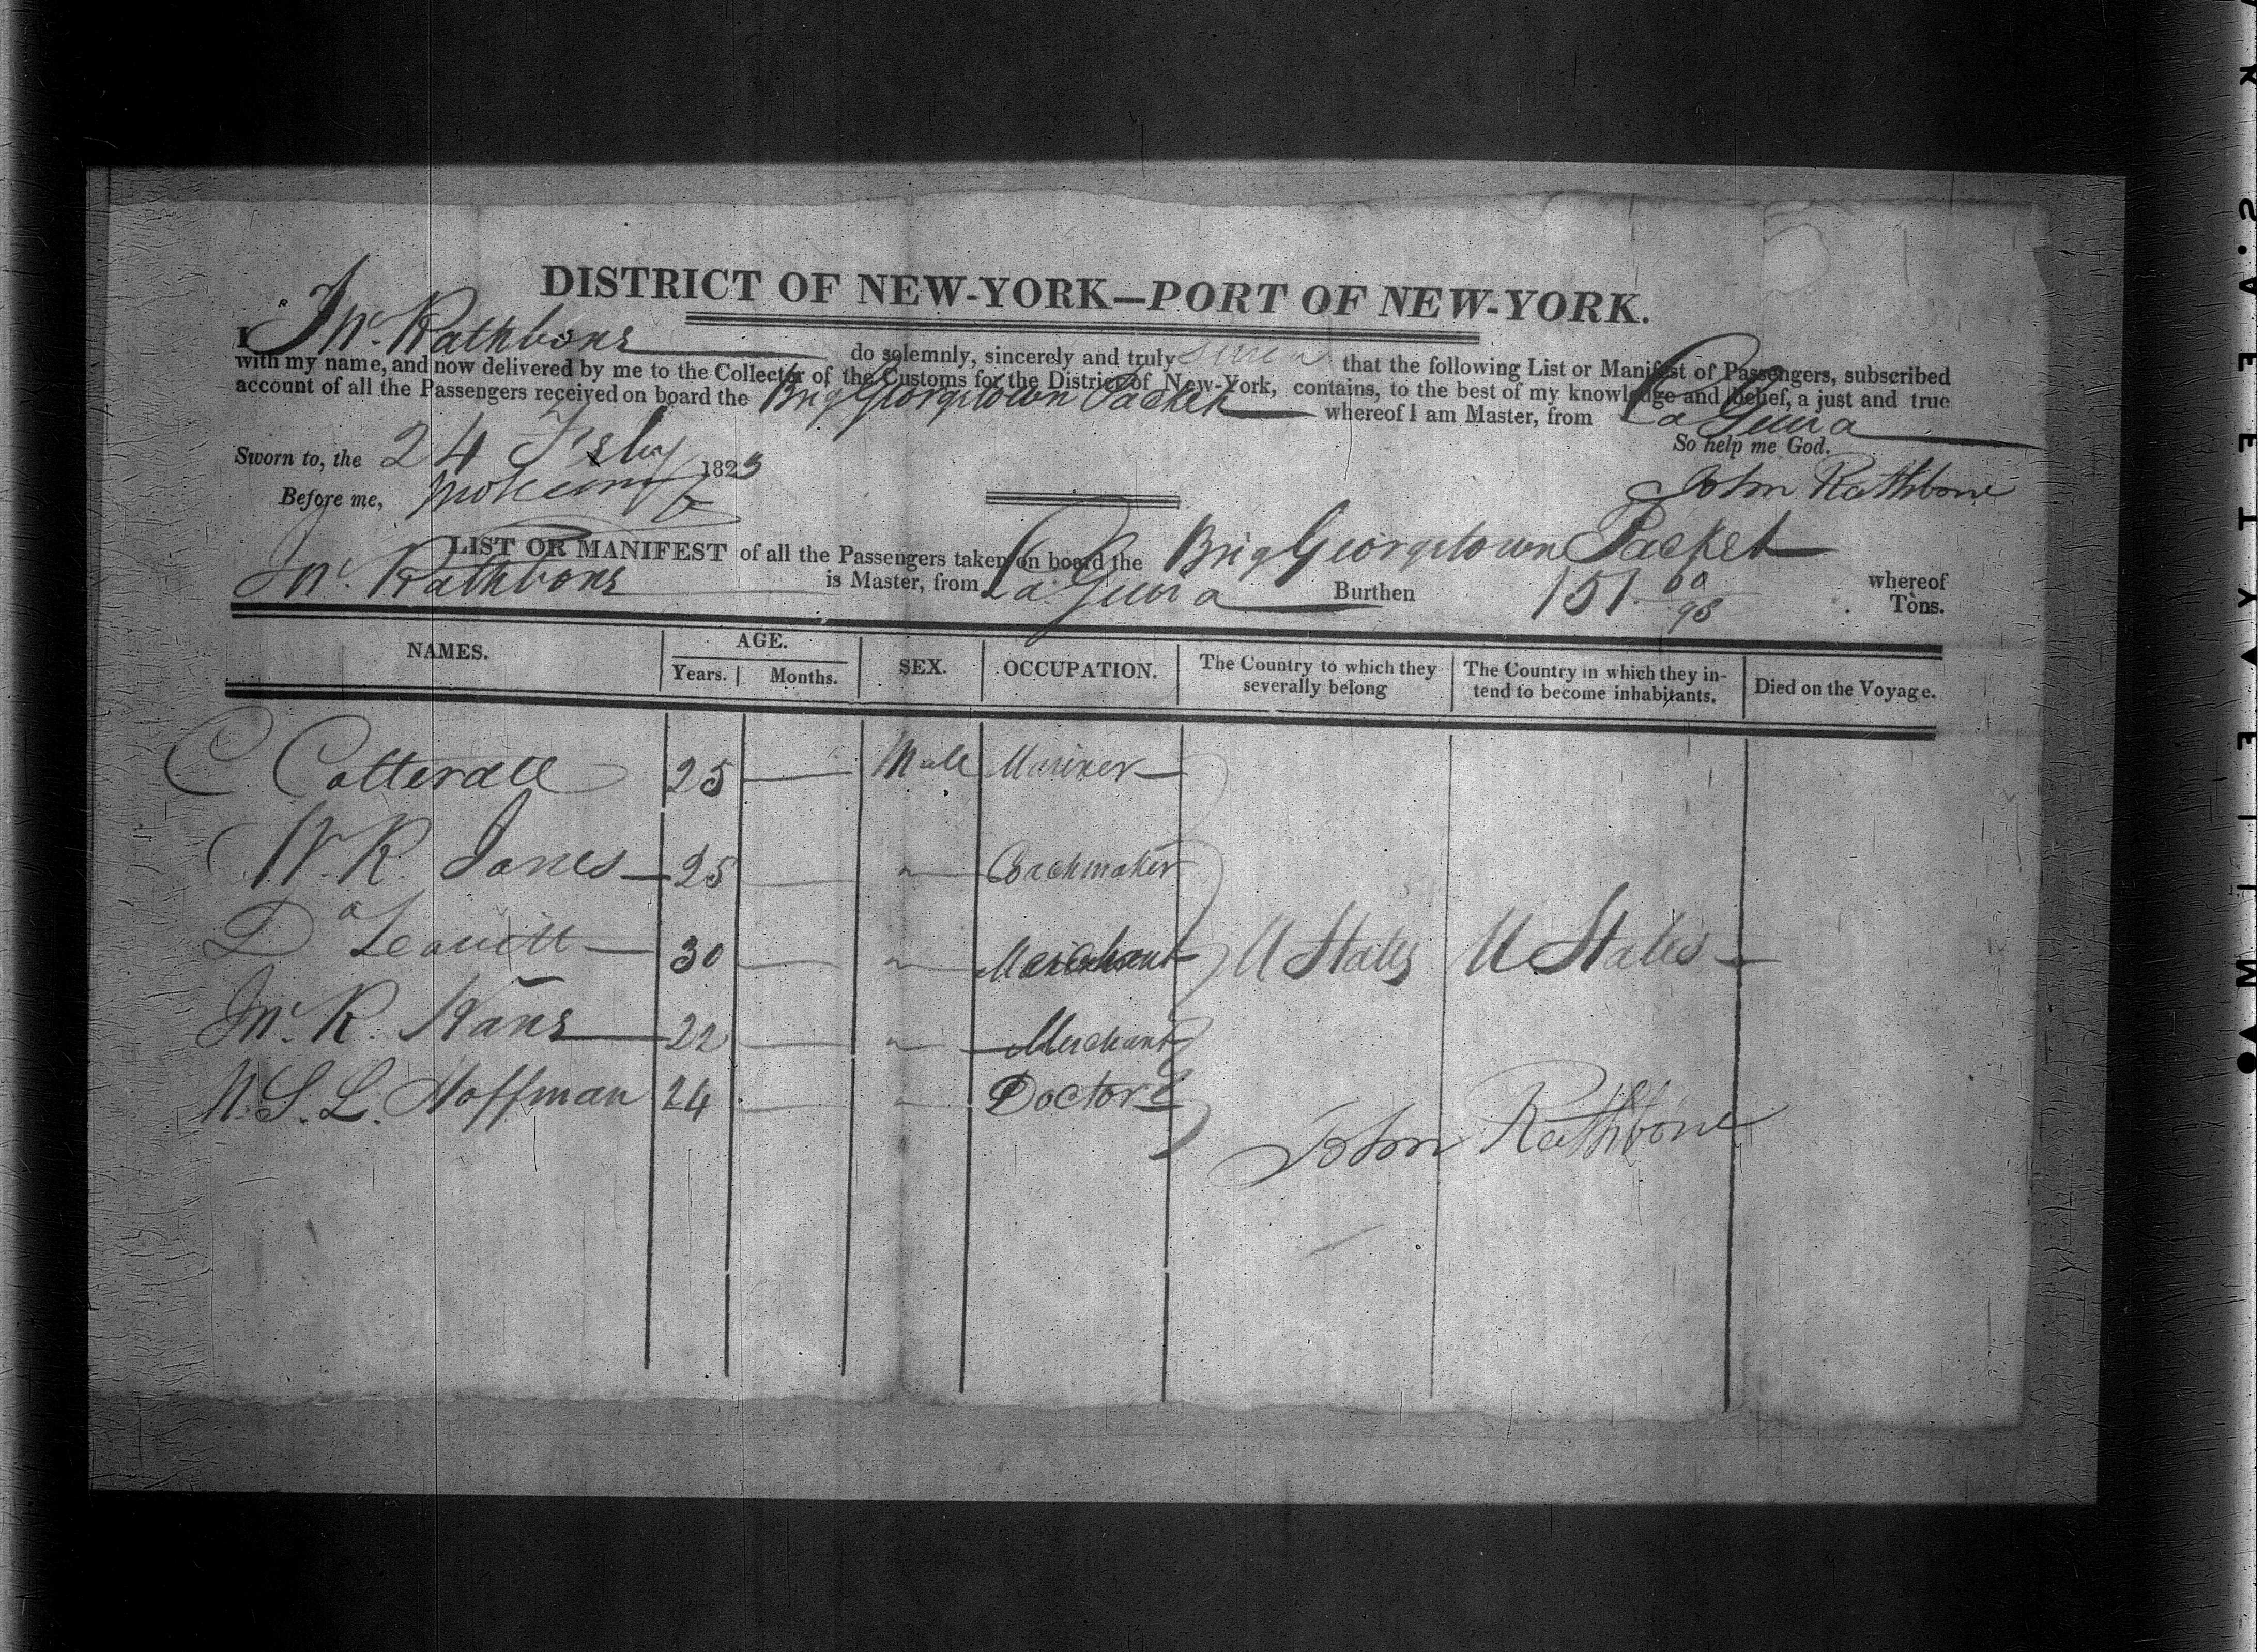 DISTRICT OF NEW-YORK—PORT OF NEW-YORK.
I Jno. Rathbone do solemnly, sincerely and truly swear that the following List or Manifest of Passengers, subscribed
with my name, and now delivered by me to the Collector of the Customs for the District of New-York, contains, to the best of my knowledge and belief, a just and true
account of all the Passengers received on board the Brig Georgetown Packet whereof I am Master, from La Guira
So help me God.
Sworn to, the 24 Feby 1823
Before me,
John Rathbone
LIST OR MANIFEST of all the Passengers taken on board the Brig Georgetown Packet whereof
Jno. Rathbone is Master, from La Guira Burthen 151 60/95 Tons.
NAMES. AGE. SEX. OCCUPATION. The Country to which they severally belong The Country in which they intend to become inhabitants. Died on the Voyage.
Years. Months.
C Cotterall 25 — Male Mariner
W. R. Jones 25 — " Coachmaker
D Leavitt 30 — " Merchant U States U States
Jno. R. Kane 22 — " Merchant
N. S. L. Hoffman 24 — " Doctor
John Rathbone